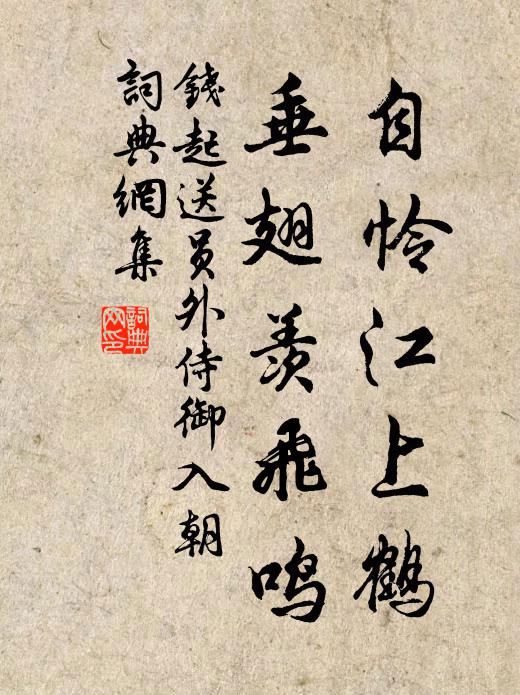 自怜江上鹤
垂翅羡飛鸣
錢起送员外侍御入朝
詞典網集
詞典
网印